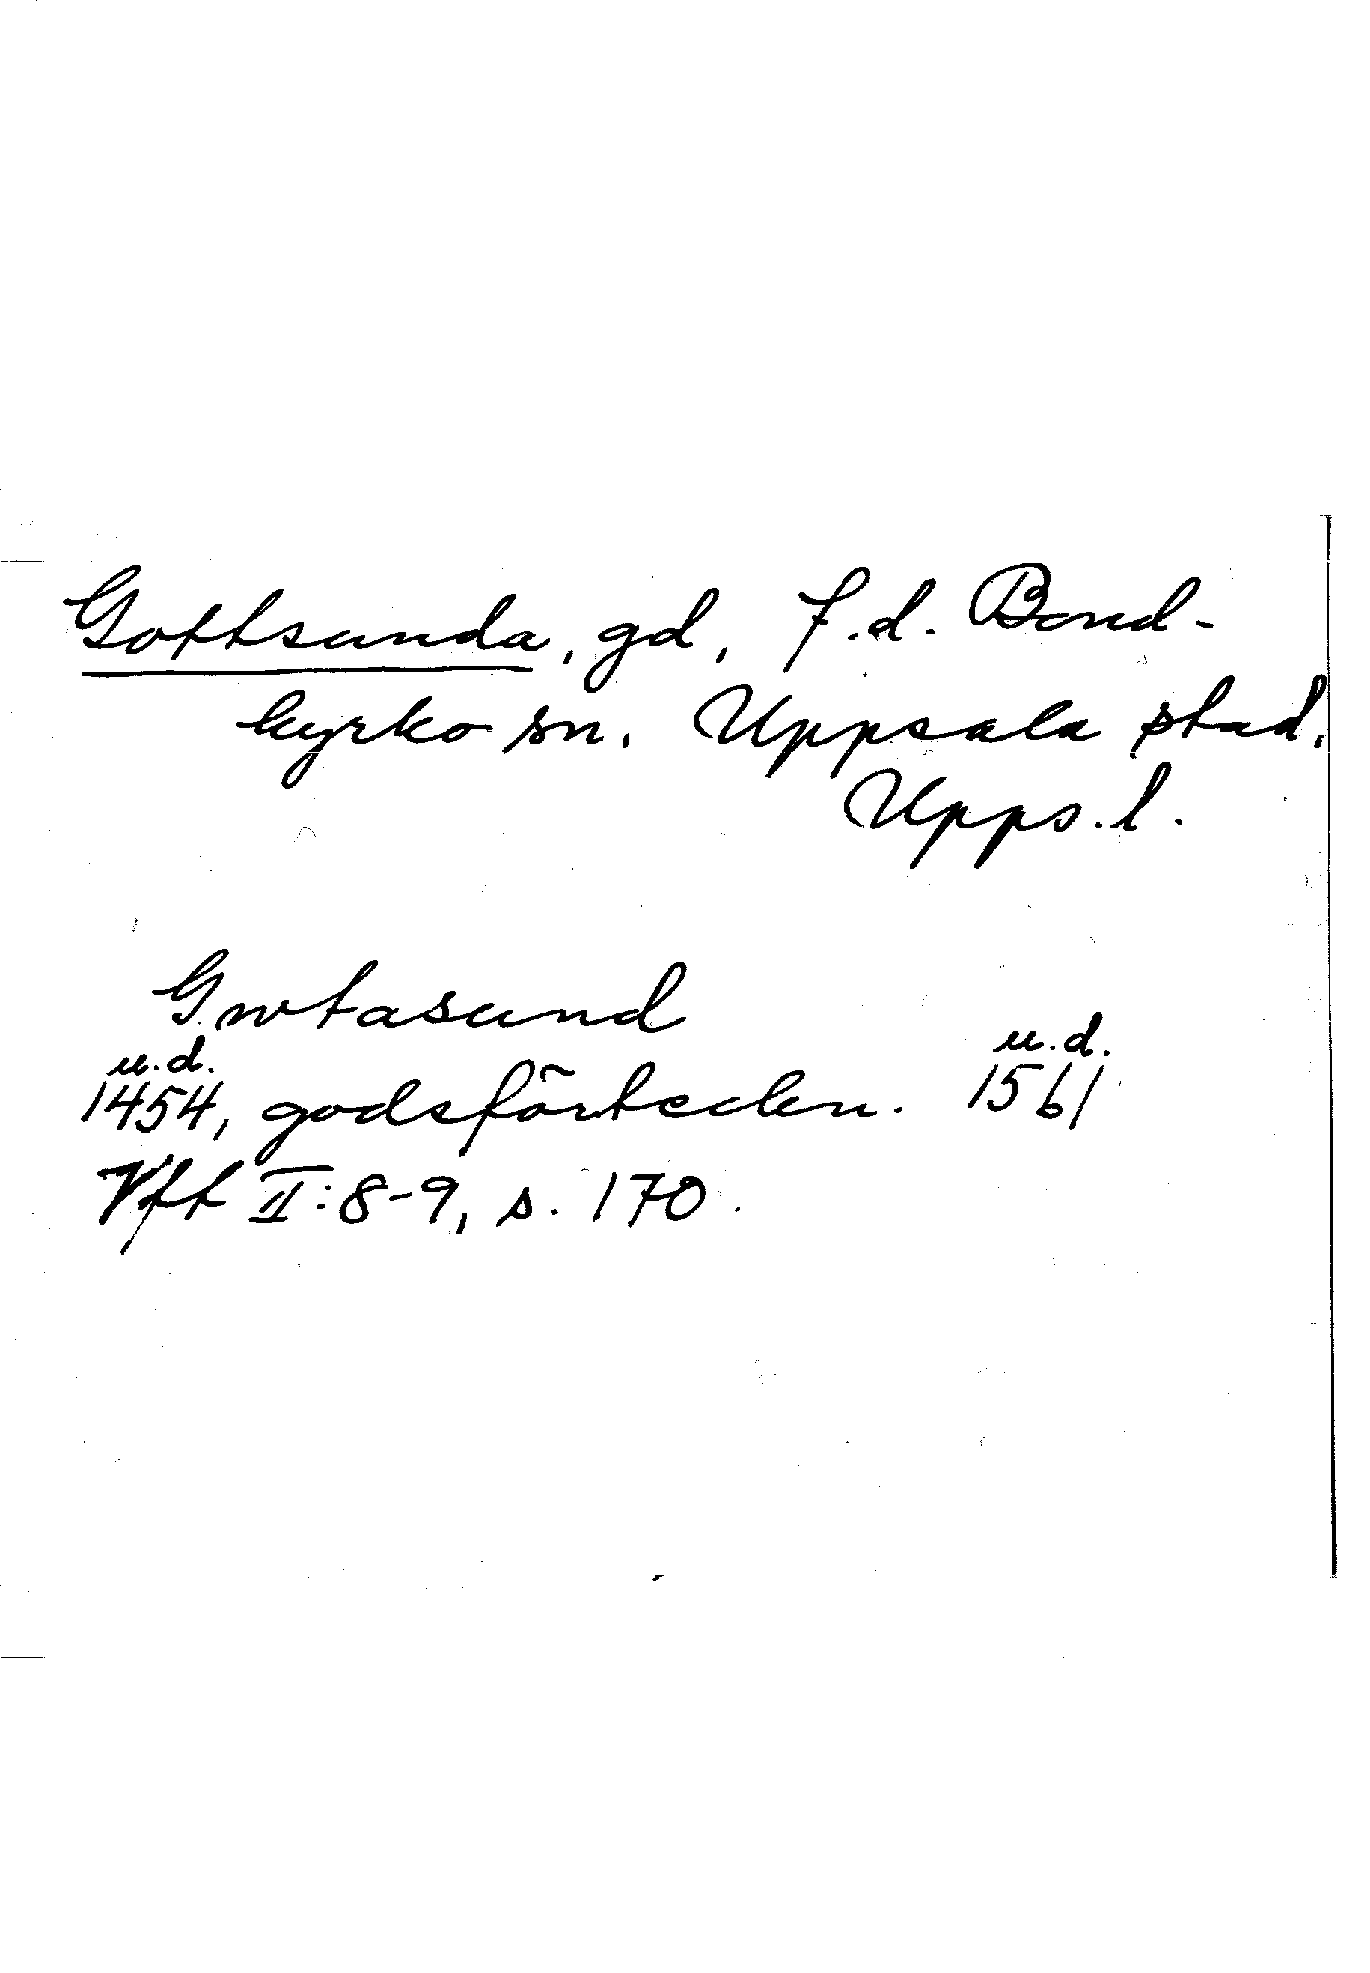 Gottsunda, gd, f.d. Bond-
kyrko sn. Uppsala stad.
Upps.l.
Gwtasund
u.d. u.d.
1454, godsförteckn. 1561
Vft II:8-9, s. 170.